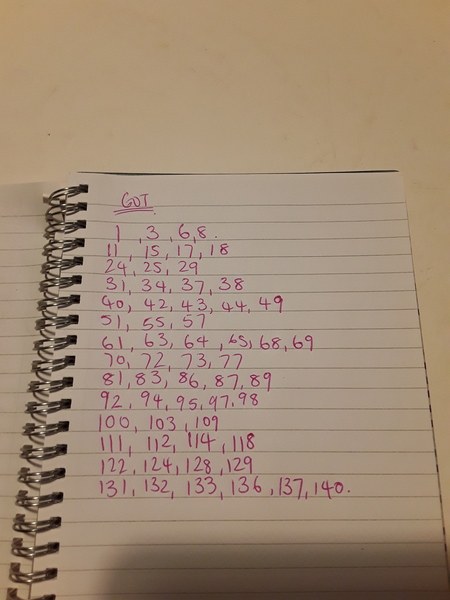 GOT
1, 3, 6, 8.
11, 15, 17, 18
24, 25, 29
31, 34, 37, 38
40, 42, 43, 44, 49
51, 55, 57
61, 63, 64, 65, 68, 69
70, 72, 73, 77
81, 83, 86, 87, 89
92, 94, 95, 97, 98
100, 103, 109
111, 112, 114, 118
122, 124, 128, 129
131, 132, 133, 136, 137, 140.